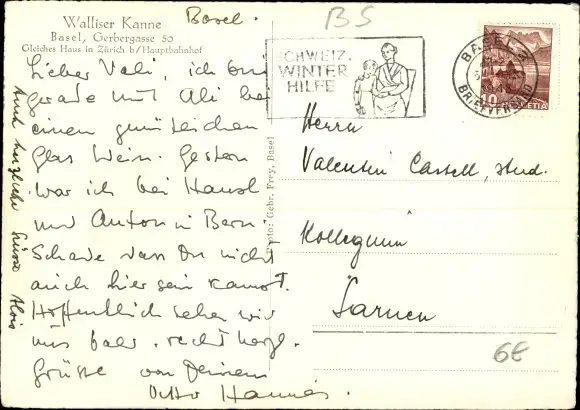 Walliser Kanne
Basel, Gerbergasse 50
Gleiches Haus in Zürich b/Hauptbahnhof
Basel.
BS
Lieber Vali, ich bin
gerade mit Ali bei
einem gemütlichen
Glas Wein. Gestern
war ich bei Hansl
und Anton in Bern.
Schade dass Du nicht
auch hier sein kannst.
Hoffentlich sehen wir
uns bald. recht herzl.
Grüsse von Deinem
Otto Hannes.
Auch herzliche Grüsse Alois
Photo: Gebr. Frey, Basel
SCHWEIZ.
WINTER
HILFE
BASEL
BRIEFVERSAND
HELVETIA
Herrn
Valentin Castell, stud.
Kollegium
Sarnen
6€